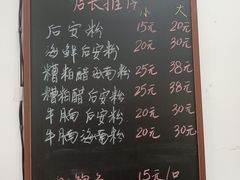 店长推荐
小 大
后安粉 15元 20元
海鲜后安粉 20元 30元
糟粕醋海南粉 25元 38元
糟粕醋后安粉 25元 38元
牛腩后安粉 20元 30元
牛腩海南粉 20元 30元
15元/口